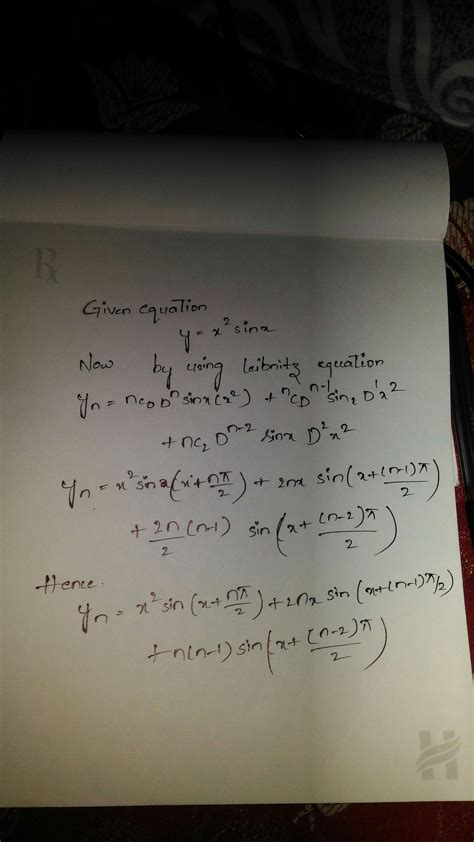 Rx
Given equation
y = x² sinx
Now by using leibnitz equation
yₙ = nc₀ Dⁿ sinx(x²) + ⁿC Dⁿ⁻¹ sin₂ D¹x²
+ nc₂ Dⁿ⁻² sinx D²x²
yₙ = x² sin (x + nπ/2) + 2nx sin(x + (n-1)π/2)
+ 2n/2 (n-1) sin(x + (n-2)π/2)
Hence.
yₙ = x² sin (x + nπ/2) + 2nx sin (x + (n-1)π/2)
+ n(n-1) sin(x + (n-2)π/2)
H